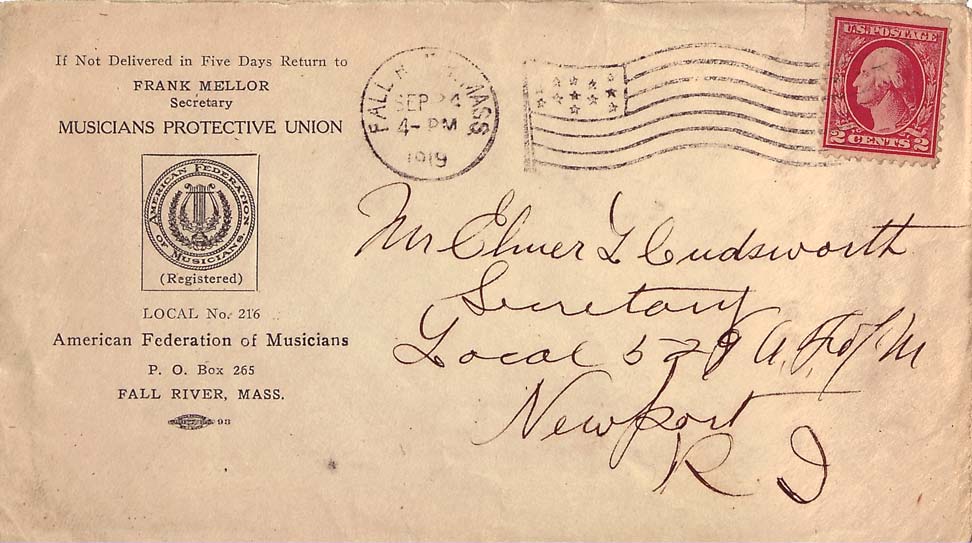 If Not Delivered in Five Days Return to
FRANK MELLOR
Secretary
MUSICIANS PROTECTIVE UNION
AMERICAN FEDERATION
OF MUSICIANS
(Registered)
LOCAL No. 216
American Federation of Musicians
P. O. Box 265
FALL RIVER, MASS.
93
FALL MASS
SEP 24
4- PM
1919
U.S. POSTAGE
2 CENTS 2
Mr Elmer L Cudsworth
Secretary
Local 529 A. F. of M
Newport
R I